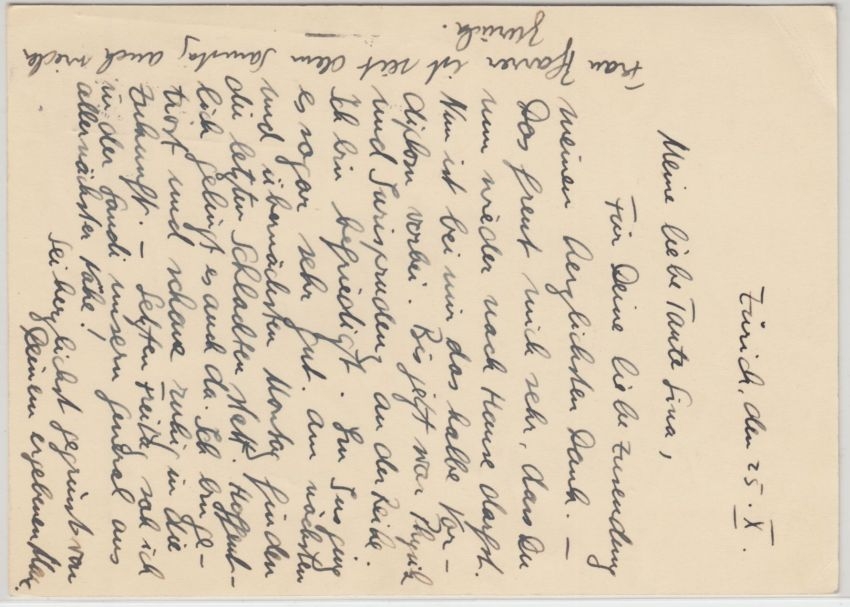 Zürich, den 25. X.
Meine liebe Tante Lina,
Für Deine liebe Zusendung
meinen herzlichsten Dank. —
Das freut mich sehr, dass Du
nun wieder nach Hause darfst.
Nun ist bei mir das halbe Vor-
diplom vorbei. Bis jetzt war Physik
und Jurisprudenz an der Reihe.
Ich bin befriedigt. Im Jus ging
es sogar sehr gut. Am nächsten
und übernächsten Montag finden
die letzten Schlachten statt. Hoffent-
lich gelingt es auch da. Ich bin ge-
trost und schaue ruhig in die
Zukunft. — Letzten Freitag sah ich
in der Landi unsern General aus
allernächster Nähe!
Sei herzlichst gegrüsst von
Deinem ergebenen Max.
Frau Pfarrer ist seit dem Samstag auch wieder
zurück.